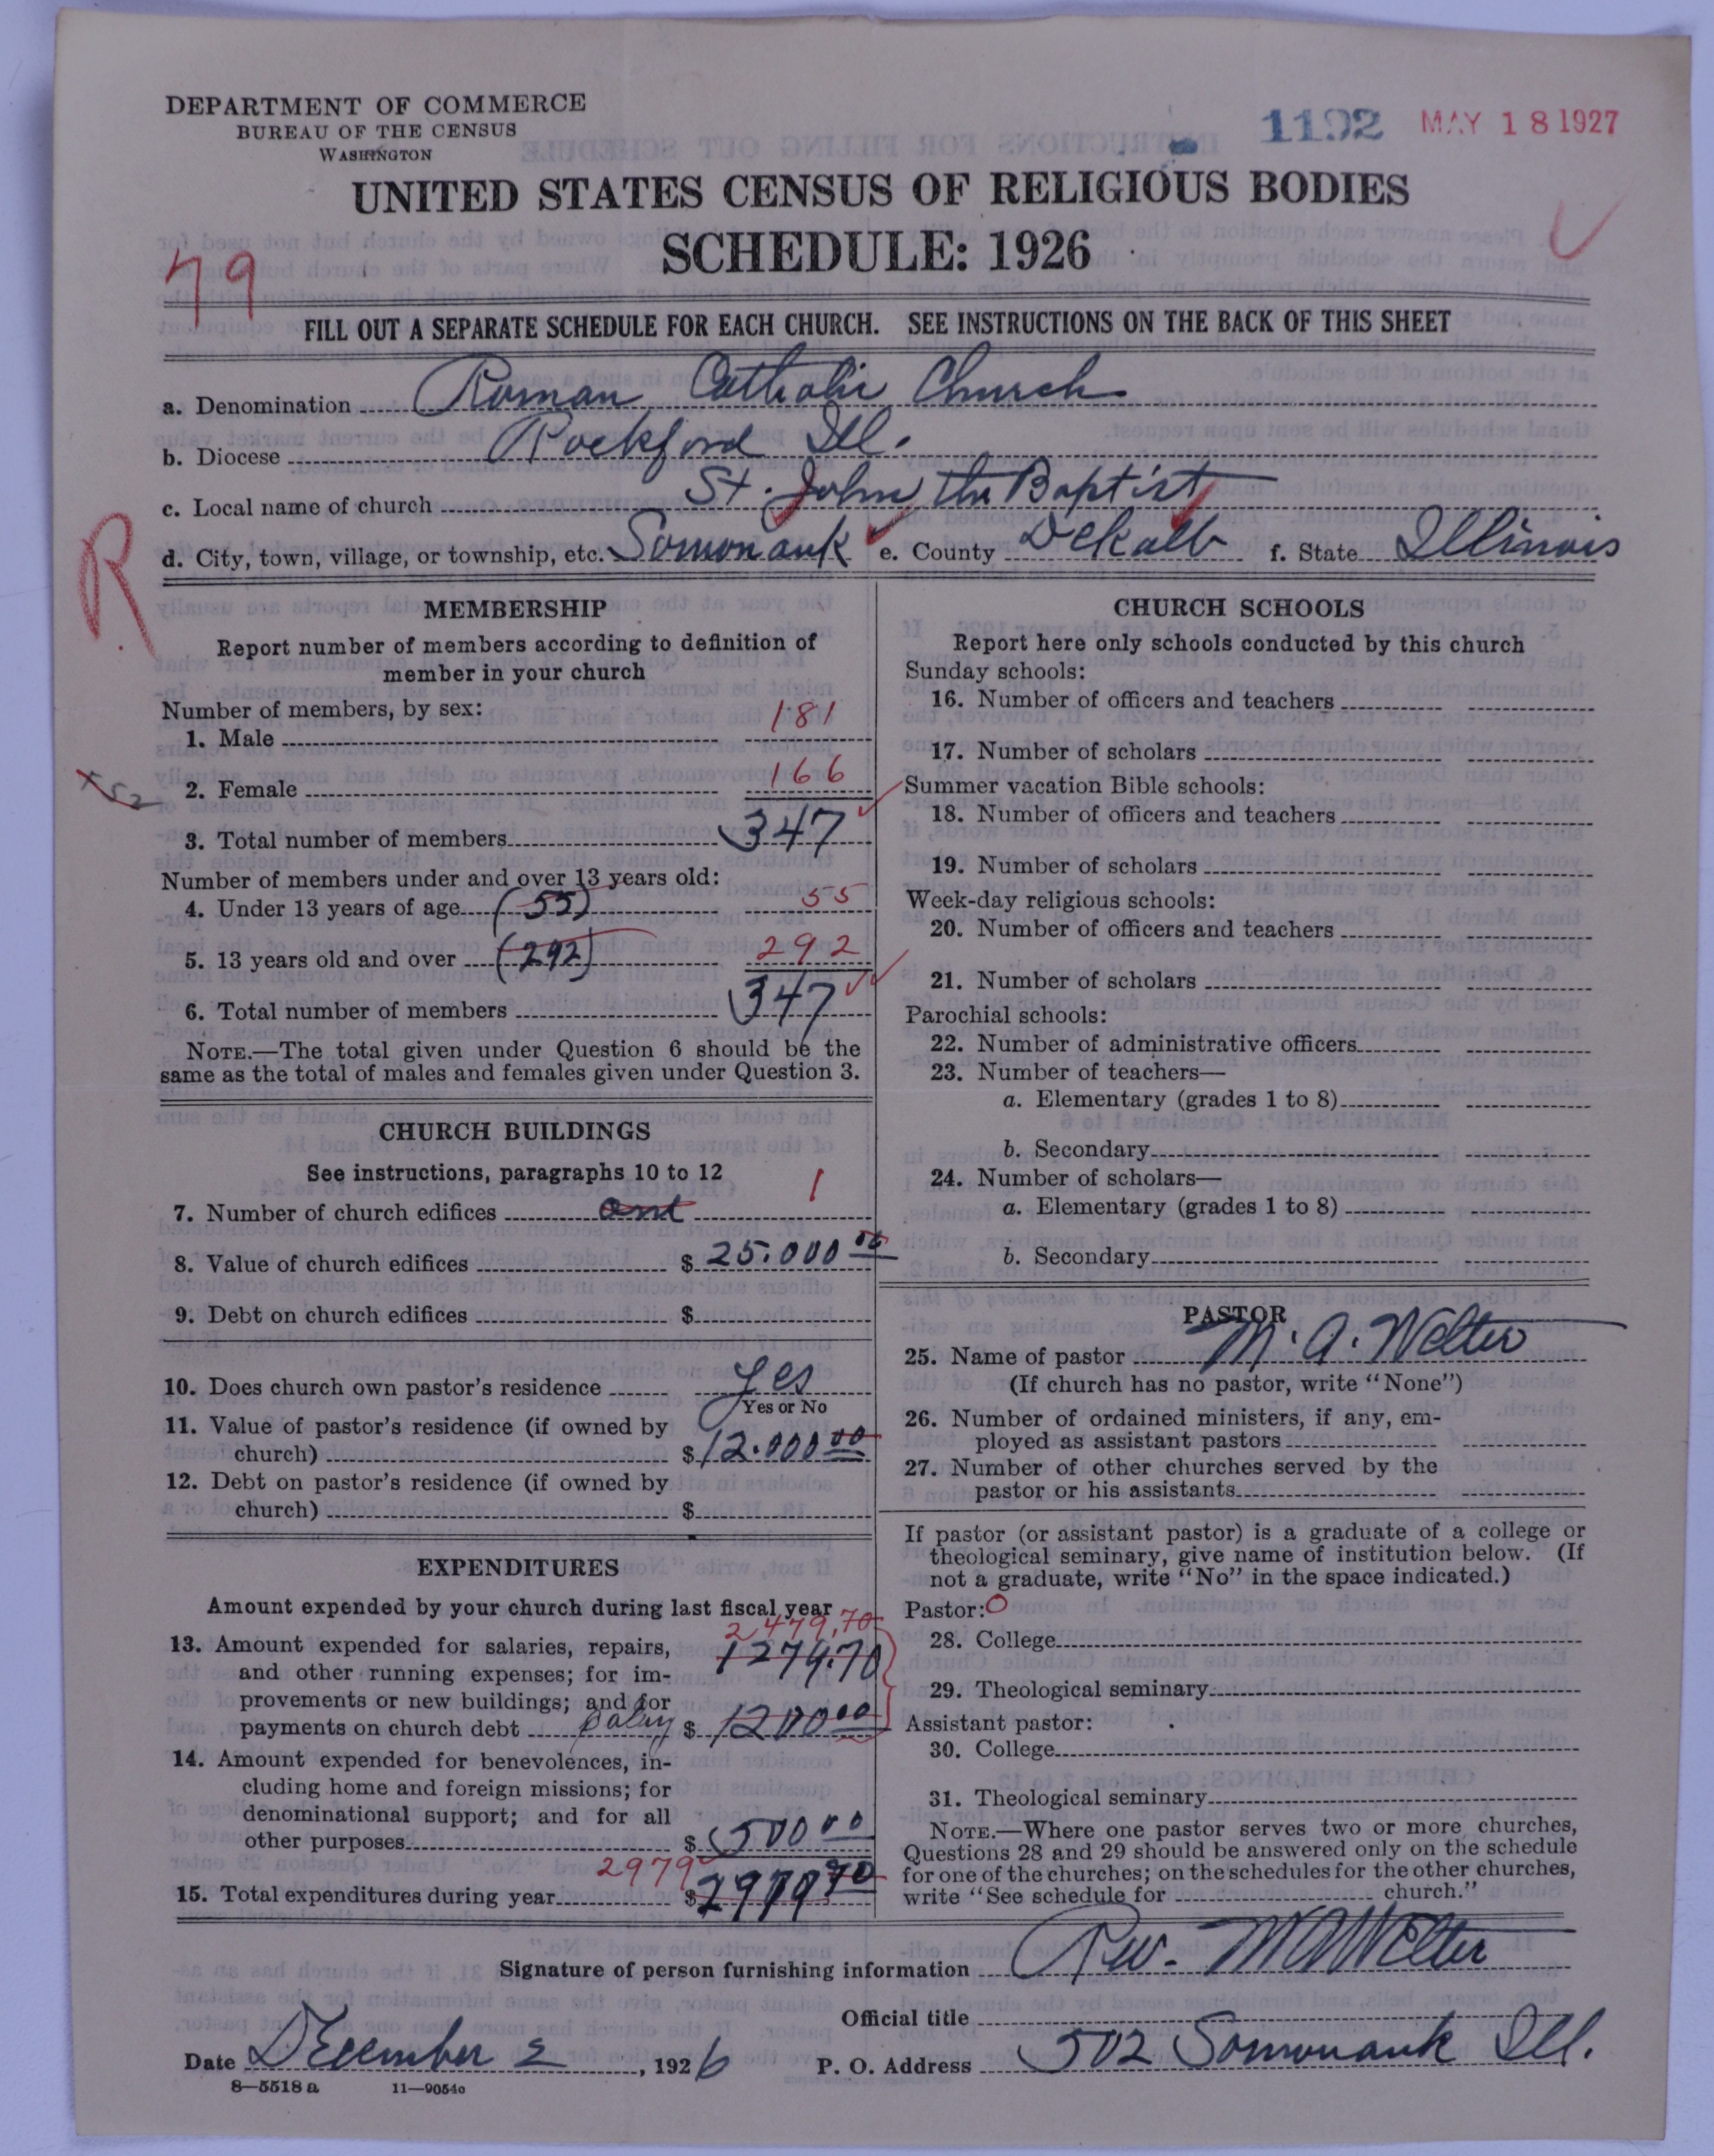 DEPARTMENT OF COMMERCE
BUREAU OF THE CENSUS
WASHINGTON
1192 MAY 18 1927
UNITED STATES CENSUS OF RELIGIOUS BODIES
SCHEDULE: 1926
79
FILL OUT A SEPARATE SCHEDULE FOR EACH CHURCH. SEE INSTRUCTIONS ON THE BACK OF THIS SHEET
a. Denomination Roman Catholic Church
b. Diocese Rockford Ill.
c. Local name of church St. John the Baptist
d. City, town, village, or township, etc. Somonauk e. County Dekalb f. State Illinois
R
MEMBERSHIP
Report number of members according to definition of
member in your church
Number of members, by sex:
1. Male 181
2. Female 166
3. Total number of members 347
Number of members under and over 13 years old:
4. Under 13 years of age (55) 55
5. 13 years old and over (292) 292
6. Total number of members 347
NOTE.—The total given under Question 6 should be the
same as the total of males and females given under Question 3.
CHURCH BUILDINGS
See instructions, paragraphs 10 to 12
7. Number of church edifices one 1
8. Value of church edifices $ 25.000 00
9. Debt on church edifices $
10. Does church own pastor's residence yes
Yes or No
11. Value of pastor's residence (if owned by
church) $ 12.000 00
12. Debt on pastor's residence (if owned by
church) $
EXPENDITURES
Amount expended by your church during last fiscal year
2479.70
13. Amount expended for salaries, repairs, 1279.70
and other running expenses; for im-
provements or new buildings; and for
payments on church debt Salary $ 1200 00
14. Amount expended for benevolences, in-
cluding home and foreign missions; for
denominational support; and for all
other purposes $ 500 00
2979
15. Total expenditures during year $ 2979 70
CHURCH SCHOOLS
Report here only schools conducted by this church
Sunday schools:
16. Number of officers and teachers
17. Number of scholars
Summer vacation Bible schools:
18. Number of officers and teachers
19. Number of scholars
Week-day religious schools:
20. Number of officers and teachers
21. Number of scholars
Parochial schools:
22. Number of administrative officers
23. Number of teachers—
a. Elementary (grades 1 to 8)
b. Secondary
24. Number of scholars—
a. Elementary (grades 1 to 8)
b. Secondary
PASTOR
25. Name of pastor M. A. Welter
(If church has no pastor, write "None")
26. Number of ordained ministers, if any, em-
ployed as assistant pastors
27. Number of other churches served by the
pastor or his assistants
If pastor (or assistant pastor) is a graduate of a college or
theological seminary, give name of institution below. (If
not a graduate, write "No" in the space indicated.)
Pastor: O
28. College
29. Theological seminary
Assistant pastor:
30. College
31. Theological seminary
NOTE.—Where one pastor serves two or more churches,
Questions 28 and 29 should be answered only on the schedule
for one of the churches; on the schedules for the other churches,
write "See schedule for church."
Signature of person furnishing information Rev. M A Welter
Official title
Date December 2, 1926 P. O. Address 502 Somonauk Ill.
8—5518 a 11—9054c